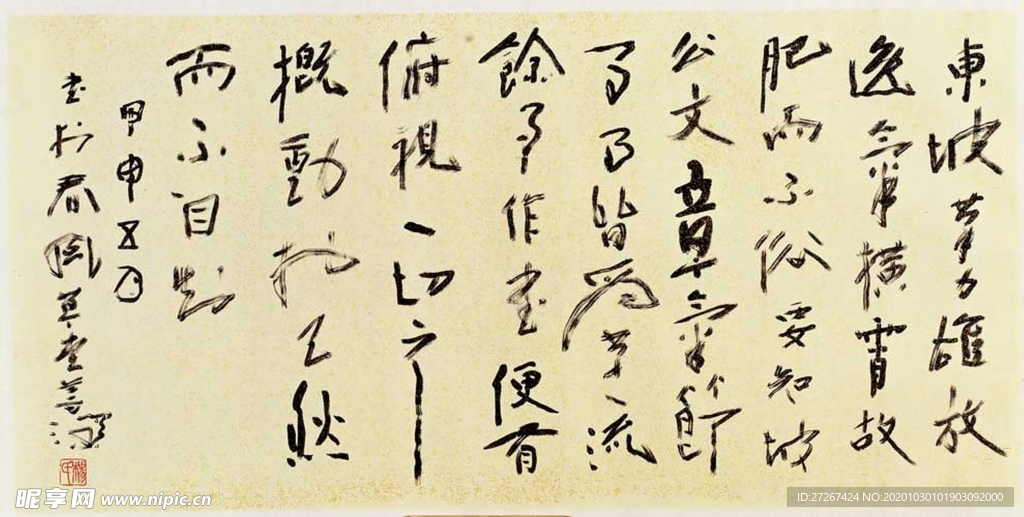 東坡筆力雄放
逸氣橫霄故
肥而不俗要知坡
公文章氣節
事事皆為第一流
餘事作書便有
俯視一切之
概動於天然
而不自知
甲申五月
書於春草堂善深
昵享网 www.nipic.cn
ID:27267424 NO:20201030101903092000